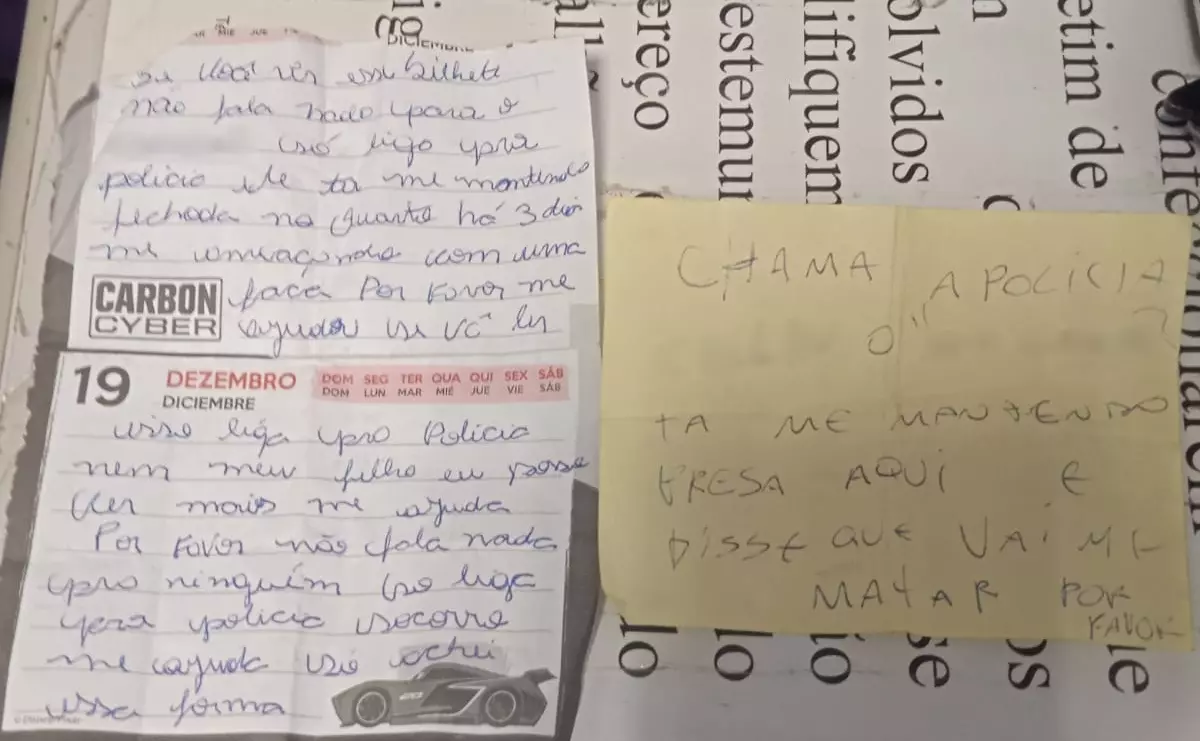 DICIEMBRE
se você vês esse bilhete
não fala nada para o
só liga pra
policia ele ta me mantendo
fechada no quarto há 3 dias
me ameaçando com uma
faca Por Favor me
CARBON
CYBER
ajudar se vô ler
19
DEZEMBRO
DOM SEG TER QUA QUI SEX SÁB
DICIEMBRE
DOM LUN MAR MIÉ JUE VIE SÁB
isso liga pro Policia
nem meu filho eu posso
ver mais me ajuda
Por Favor não fala nada
pro ninguém só liga
para policia socorro
me ajuda só achei
essa forma
CHAMA
A POLICIA
O
TA ME MANTENDO
PRESA AQUI E
DISSE QUE VAI ME
MATAR POR
FAVOR
ereço
estemun
lifiquem
olvidos
etim de